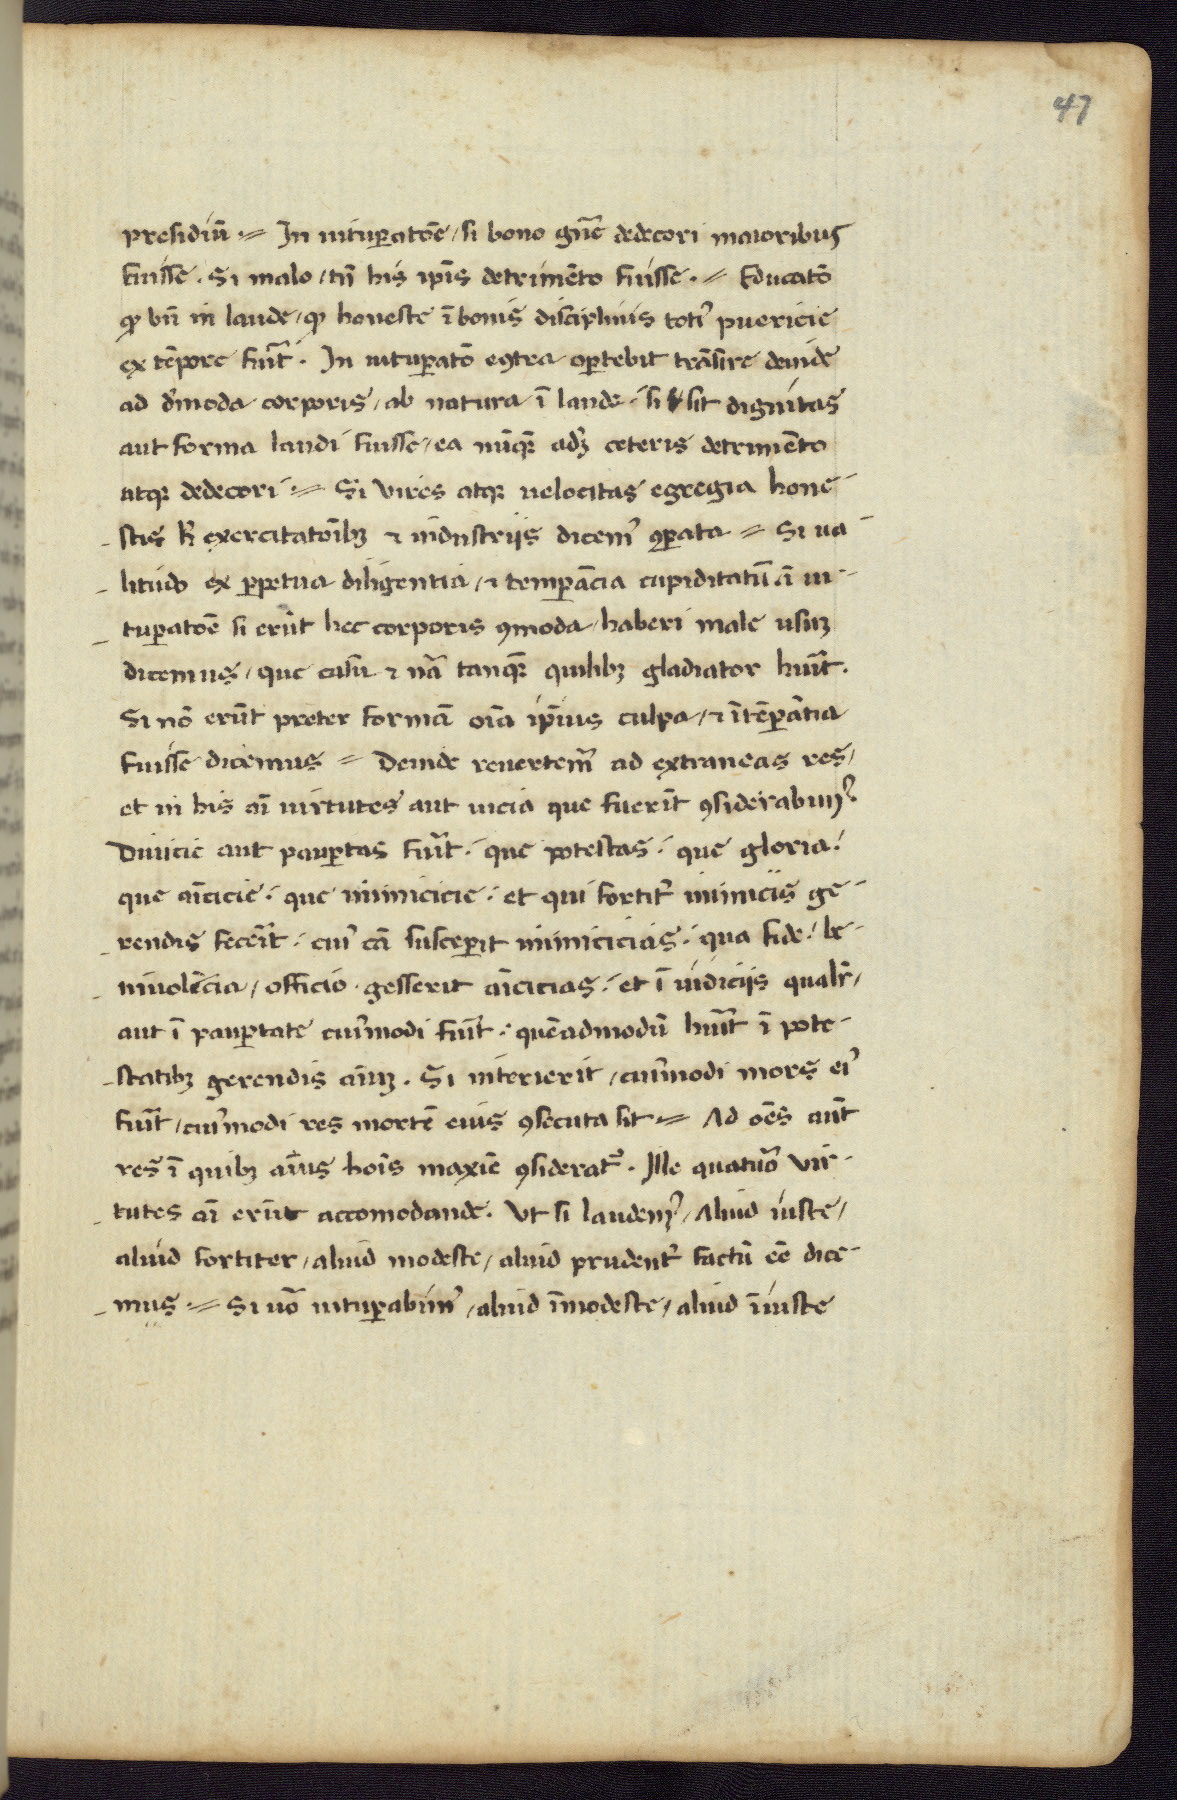 47
presidiū ·⸗ In uitup̱atōe / si bono gn̄e dedecori maioribus
fuisse . Si malo / tn̄ his ip̄is detrimēto fuisse . ⸗ Educatō
bn̄ in laude / honeste ī bonis disciplinis totꝰ puericie
ex tēpore fuīt . In uitup̱atō eꝯtra op̱tebit trāsire deinde
ad corporis / ab natura ī laude · si sit dignitas
aut forma laudi fuisse / ea nūq̄ʒ ceteris detrimēto
atqꝫ dedecori ·⸗ Si vires atqꝫ uelocitas egregia hone-
stis exercitatōibꝫ ⁊ industrijs dicemꝰ ꝯp̱ata ⸗ Si ua-
litudo ex p̱petua diligentia / ⁊ temp̱ācia cupiditatū ī ui-
tup̱atōe si erūt hec corporis ꝯmoda / haberi male usuꝫ
dicemus / que casu ⁊ nā tanq̄ʒ quilibꝫ gladiator huīt .
Si nō erūt preter formā oīa ip̄ius culpa / ⁊ ītēp̱ātia
fuisse dicemus ⸗ Deinde reuertemꝰ ad extraneas res /
et in his aī uirtutes aut uicia que fuerīt ꝯsiderabimꝰ
Diuicie aut paup̱tas fuīt · que potestas · que gloria ·
que aīcicie · que inimicicie · et qui fortitꝰ inimiciis ge-
rendis fecerīt · cuiꝰ cā suscep̱it inimicicias · qua fide · be-
niuolēcia / officio · gesserit aīcicias · et ī iudicijs qualr̄ /
aut ī paup̱tate cuiꝰmodi fuīt · quēadmodū huīt ī pote-
statibꝫ gerendis aīuꝫ . Si interierit / cuiꝰmodi mors eiꝰ
fuīt / cuiꝰmodi res mortē eius ꝯsecuta sit ·⸗ Ad oēs aūt
res ī quibꝫ aīus hoīs maxīe ꝯsideratꝰ . Ille quatuor̄ vir-
tutes aī erūt accomodande . Vt si laudemꝰ / Aliud iuste /
aliud fortiter / aliud modeste / aliud prudentꝰ factū eē dice-
mus ·⸗ Si uo̅ uitup̱abimꝰ / aliud īmodeste / aliud īiuste